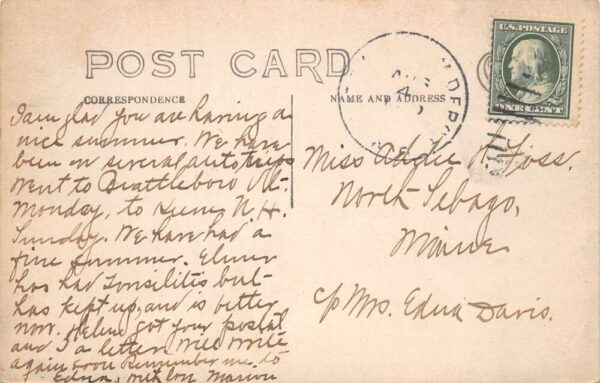 POST CARD
CORRESPONDENCE
NAME AND ADDRESS
U.S. POSTAGE
ONE CENT
AUG
4
I am glad you are having a
nice summer. We have
been on several auto trips
went to Brattleboro Vt.
Monday, to Keene N.H.
Sunday. We have had a
fine summer. Elmer
has had tonsilitis but
has kept up, and is better
now. Helen got your postal
and I a letter will write
again soon Remember me to
Edna, with love Marion
Miss Addie Foss.
North Sebago,
Maine
c/o Mrs. Edna Davis.